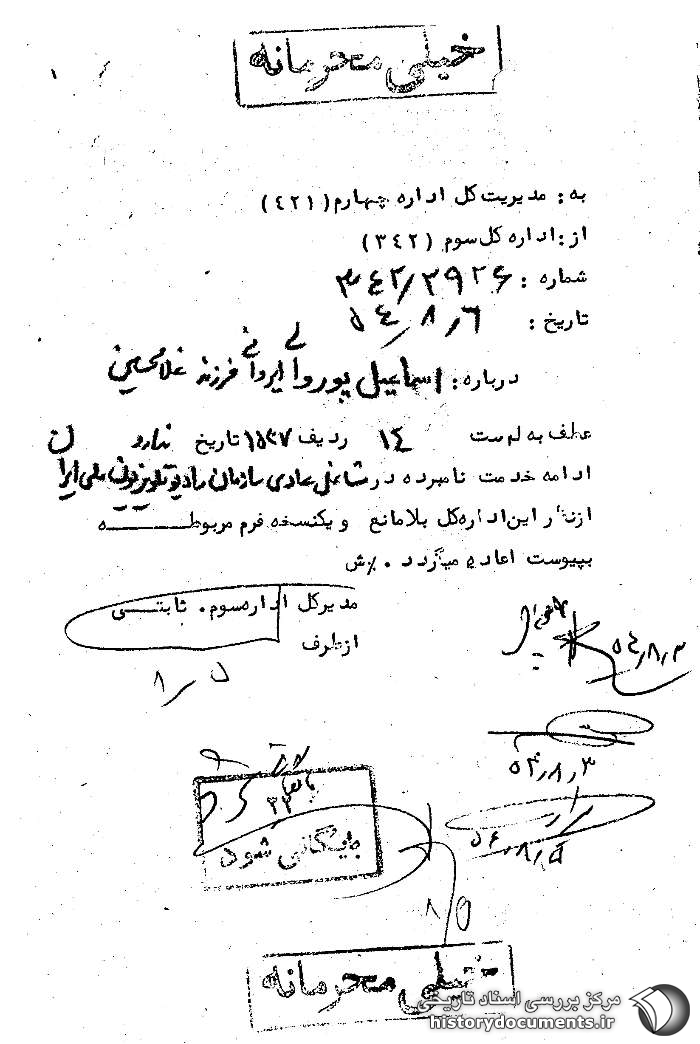 خیلی محرمانه
به: مدیریت کل اداره چهارم (۴۲۱)
از: اداره کل سوم (۳۴۲)
شماره: ۳۴۲/۲۹۲۶
تاریخ: ۵۴/۸/۶
درباره: اسماعیل پوروالی ایروانی فرزند غلامحسین
عطف به لیست ۱۴ ردیف ۱۵۲۷ تاریخ ندارد
ادامه خدمت نامبرده در شاغلی عادی سازمان رادیو تلویزیونی ملی ایران
از نظر این اداره کل بلامانع و یکنسخه فرم مربوطه
بپیوست اعاده میگردد. ش
مدیر کل اداره سوم. ثابتی
از طرف
۸/۵
۵۴/۸/۳
۵۴/۸/۳
۵۴/۸/۵
بایگانی
۳۲
بایگانی شود
۸/۵
خیلی محرمانه
مرکز بررسی اسناد تاریخی
historydocuments.ir